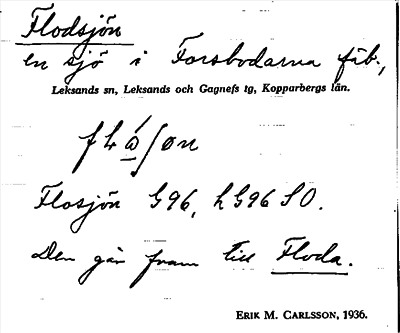 Flodsjön
en sjö i Forsbodarna fäb.,
Leksands sn, Leksands och Gagnefs tg, Kopparbergs län.
Flosjön G96, LG96 SO.
Den går fram till Floda.
ERIK M. CARLSSON, 1936.